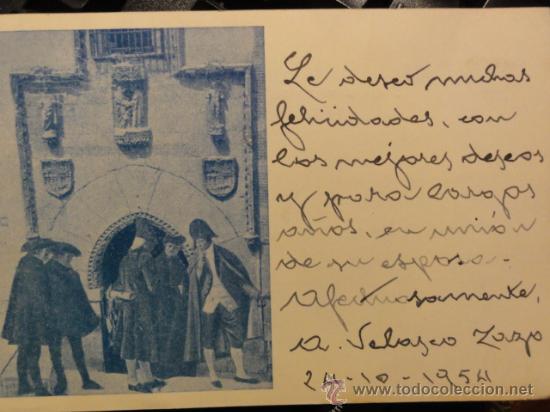 Le deseo muchas
felicidades, con
los mejores deseos
y para largos
años, en unión
de su esposa.
Afectuosamente,
A. Velasco Zazo
24-10-1954
todocoleccion.net